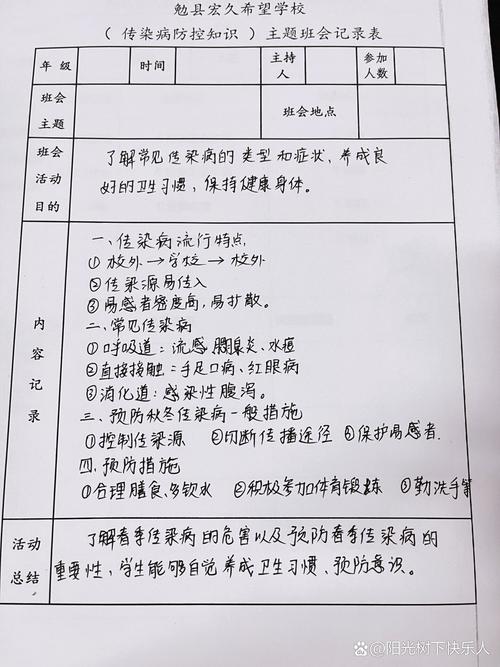 勉县宏久希望学校
（ 传染病防控知识 ）主题班会记录表
年 级 时间 主持人 参加人数
班会主题 班会地点
班会活动目的
了解常见传染病的类型和症状、养成良
好的卫生习惯，保持健康身体。
内容记录
一、传染病流行特点
①校外→学校→校外
②传染源易传入
③易感者密度高，易扩散。
二、常见传染病
①呼吸道：流感、腮腺炎、水痘
②直接接触：手足口病、红眼病
③消化道：感染性腹泻。
三、预防秋冬传染病一般措施
①控制传染源 ②切断传播途径 ③保护易感者.
四、预防措施
①合理膳食、多饮水 ②积极参加体育锻炼 ③勤洗手等
活动总结
了解春季传染病的危害以及预防春季传染病的
重要性，学生能够自觉养成卫生习惯、预防意识。
@阳光树下快乐人